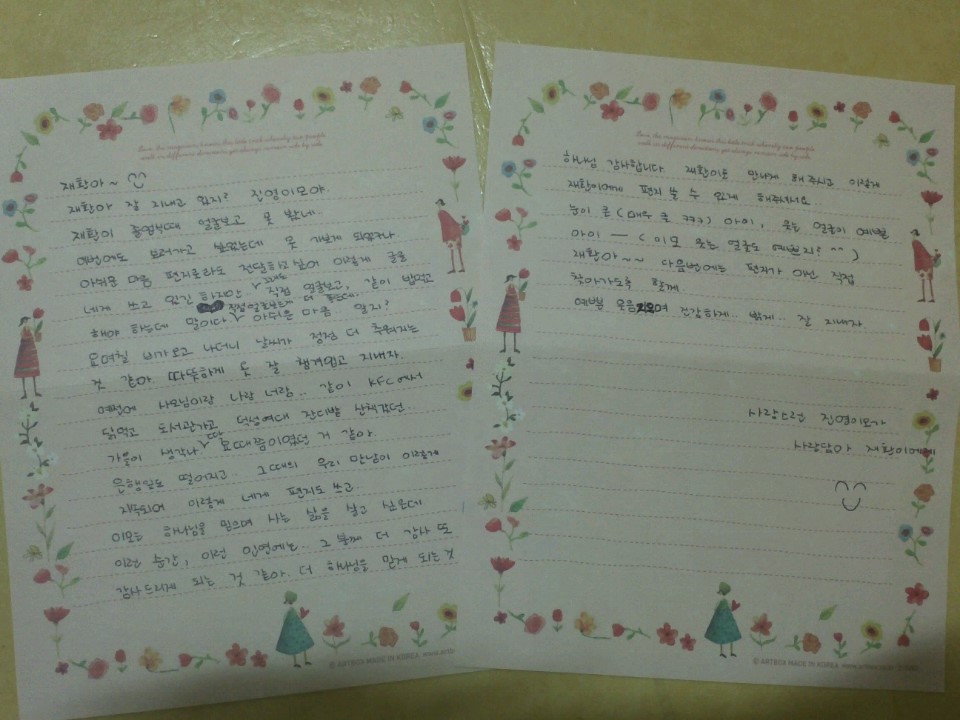 재환아~
재환아 잘 지내고 있지? 진영이모야.
재환이 졸업부때 얼굴보고 못 봤네..
이번에도 보러가고 싶었는데 못 가보게 되었구나
아쉬운 마음 편지로라도 전달하고싶어 이렇게 글을
네게 쓰고 있긴 하지만 그래도 직접 얼굴보고, 같이 밥먹고
해야 하는데 말이다 직접 얼굴보는게 더 좋은데.. 아쉬운 마음 알지?
요며칠 비가오고 나더니 날씨가 점점 더 추워지는
것 같아. 따뜻하게 옷 잘 챙겨입고 지내자.
예전에 사모님이랑 나랑 너랑.. 같이 KFC에서
닭먹고 도서관가고 덕성여대 잔디밭 산책갔던..
가을이 생각나 딱 요때쯤이였던 거 같아.
은행잎도 떨어지고 그때의 우리 만남이 이렇게
지속되어 이렇게 네게 편지도 쓰고
이모는 하나님을 믿으며 사는 삶을 살고 싶은데
이런 순간, 이런 인연에는 그 분께 더 감사 또
감사드리게 되는 것 같아. 더 하나님을 믿게 되는 것
하나님 감사합니다 재환이를 만나게 해주시고 이렇게
재환이에게 편지 쓸 수 있게 해주셔서요
눈이 큰 (매우 큰 ㅋㅋㅋ) 아이, 웃는 얼굴이 예쁜
아이 — (이모 웃는 얼굴도 예쁘지? ^^)
재환아~~ 다음번에는 편지가 아닌 직접
찾아가도록 할께
예쁜 웃음 지으며 건강하게.. 밝게.. 잘 지내자
사랑스런 진영이모가
사랑담아 재환이에게
© ARTBOX MADE IN KOREA
© ARTBOX MADE IN KOREA